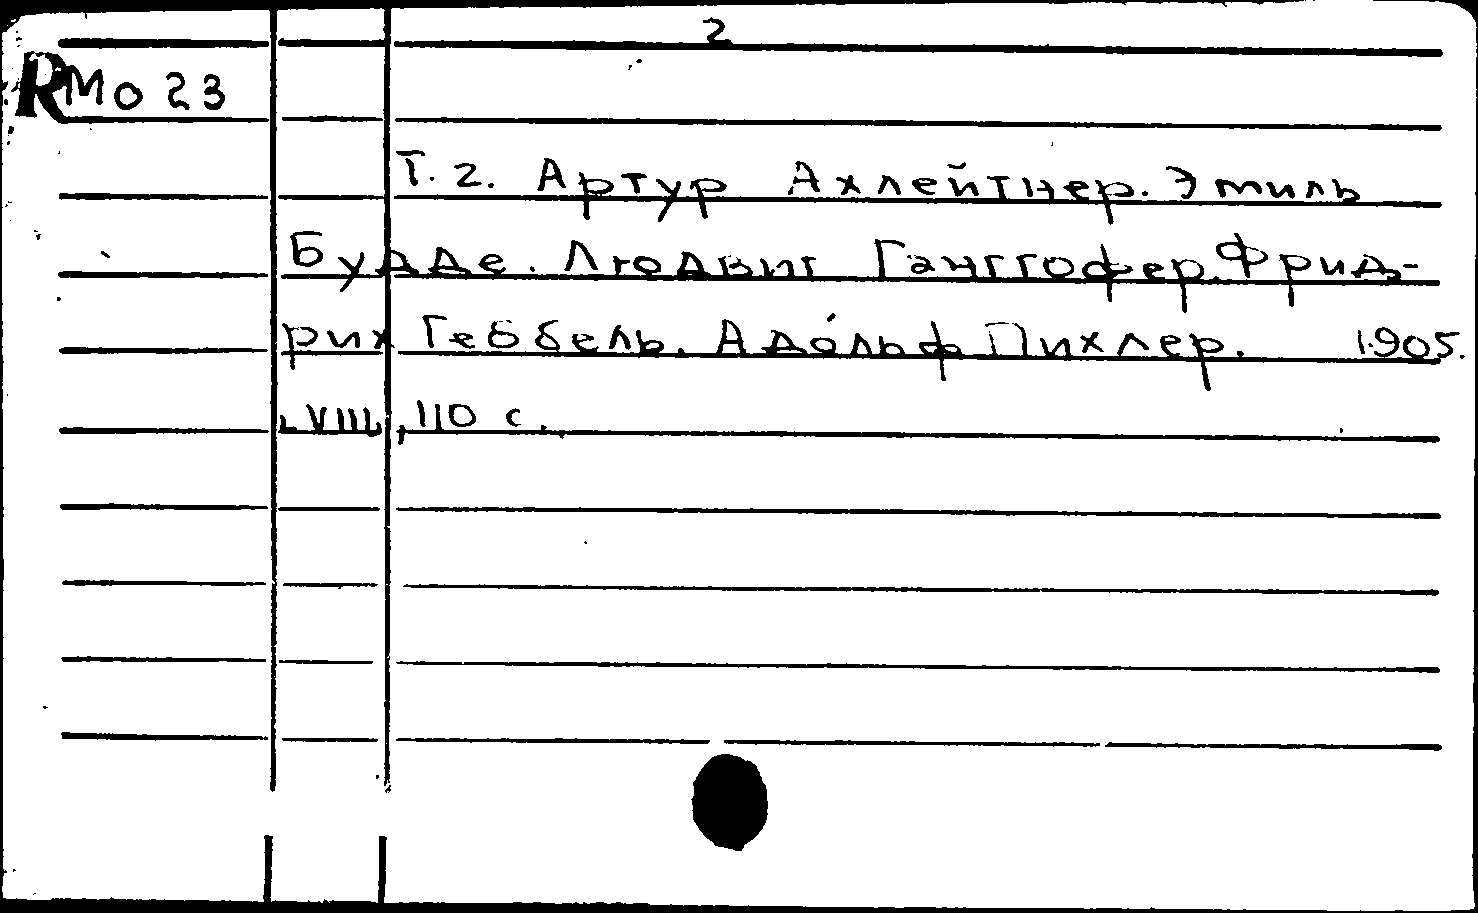 2
RMo 23
Т. 2. Артур Ахлейтнер. Эмиль
Будде. Людвиг Гангтофер. Фрид-
рих Геббель. Адольф Пихлер. 1905.
VIII, 110 с.